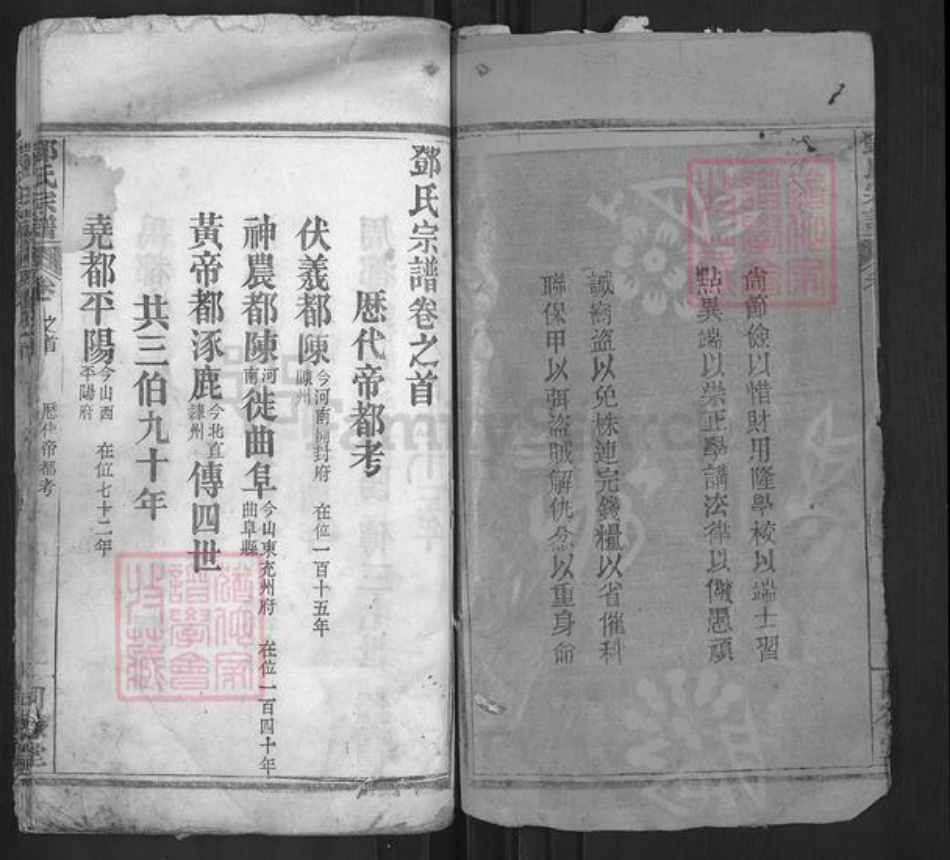 尚節儉以惜財用隆學校以端士習
黜異端以崇正學講法律以儆愚頑
誡窩盜以免株連完錢糧以省催科
聯保甲以弭盜賊解仇忿以重身命
鄧氏宗譜卷之首
歷代帝都考
伏羲都陳今河南開封府陳州 在位一百十五年
神農都陳河南徙曲阜今山東兖州府曲阜縣 在位一百四十年
黃帝都涿鹿今北直涿州傳四世
共三伯九十年
堯都平陽今山西平陽府 在位七十二年
鄧氏宗譜 卷之首 歷代帝都考